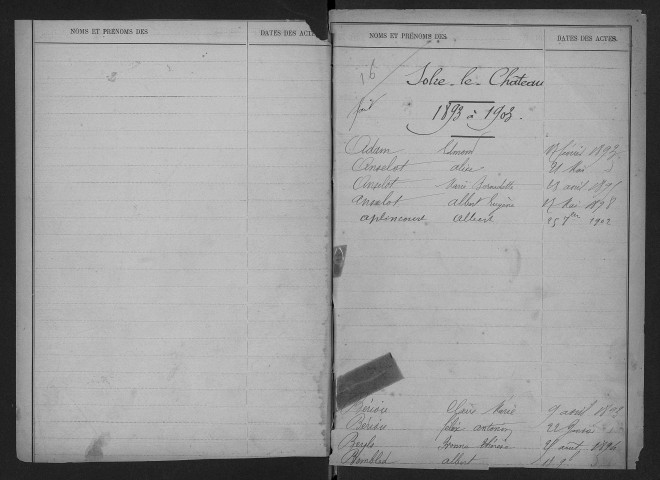 NOMS ET PRÉNOMS DES
DATES DES ACTES
NOMS ET PRÉNOMS DES
DATES DES ACTES.
16
Solre-le-Chateau
fait
1893 à 1903.
Adam Edmond 17 février 1893
Anselot alice 21 Mai
Anselot Marie Bernadette 23 avril 1895
Anselot Albert Eugène 17 Mai 1898
aplencourt Albert 25 7bre 1902
Bérière Claire Marie 9 avril
Bérière antony 22
Thérèse août 1896
albert